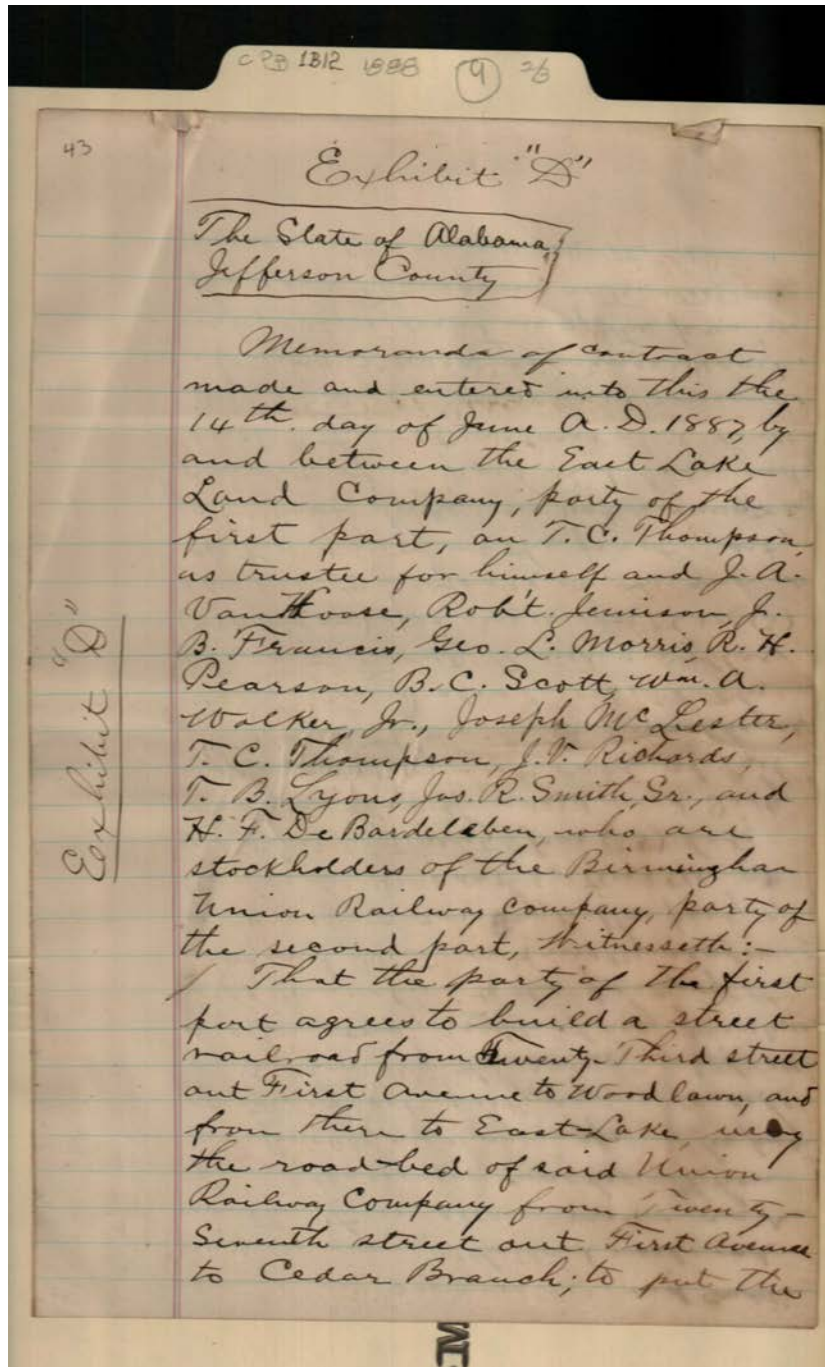 CPB 1B12 1888 9 2/3
43
Exhibit "D"
The State of Alabama
Jefferson County
Memoranda of contract
made and entered into this the
14th. day of June A. D. 1887, by
and between the East Lake
Land Company, party of the
first part, an T. C. Thompson,
as trustee for himself and J. A.
VanHoose, Rob't. Jemison, J.
B. Francis, Geo. L. Morris, R. H.
Pearson, B. C. Scott, Wm. A.
Walker, Jr., Joseph McLester,
T. C. Thompson, J. V. Richards,
T. B. Lyons, Jos. R. Smith, Sr., and
H. F. DeBardeleben, who are
stockholders of the Birmingham
Union Railway Company, party of
the second part, Witnesseth:-
That the party of the first
part agrees to build a street
railroad from Twenty-Third street
out First Avenue to Woodlawn, and
from there to East-Lake, using
the road-bed of said Union
Railway Company from Twenty-
Seventh street out First Avenue
to Cedar Branch; to put the
Exhibit "D"